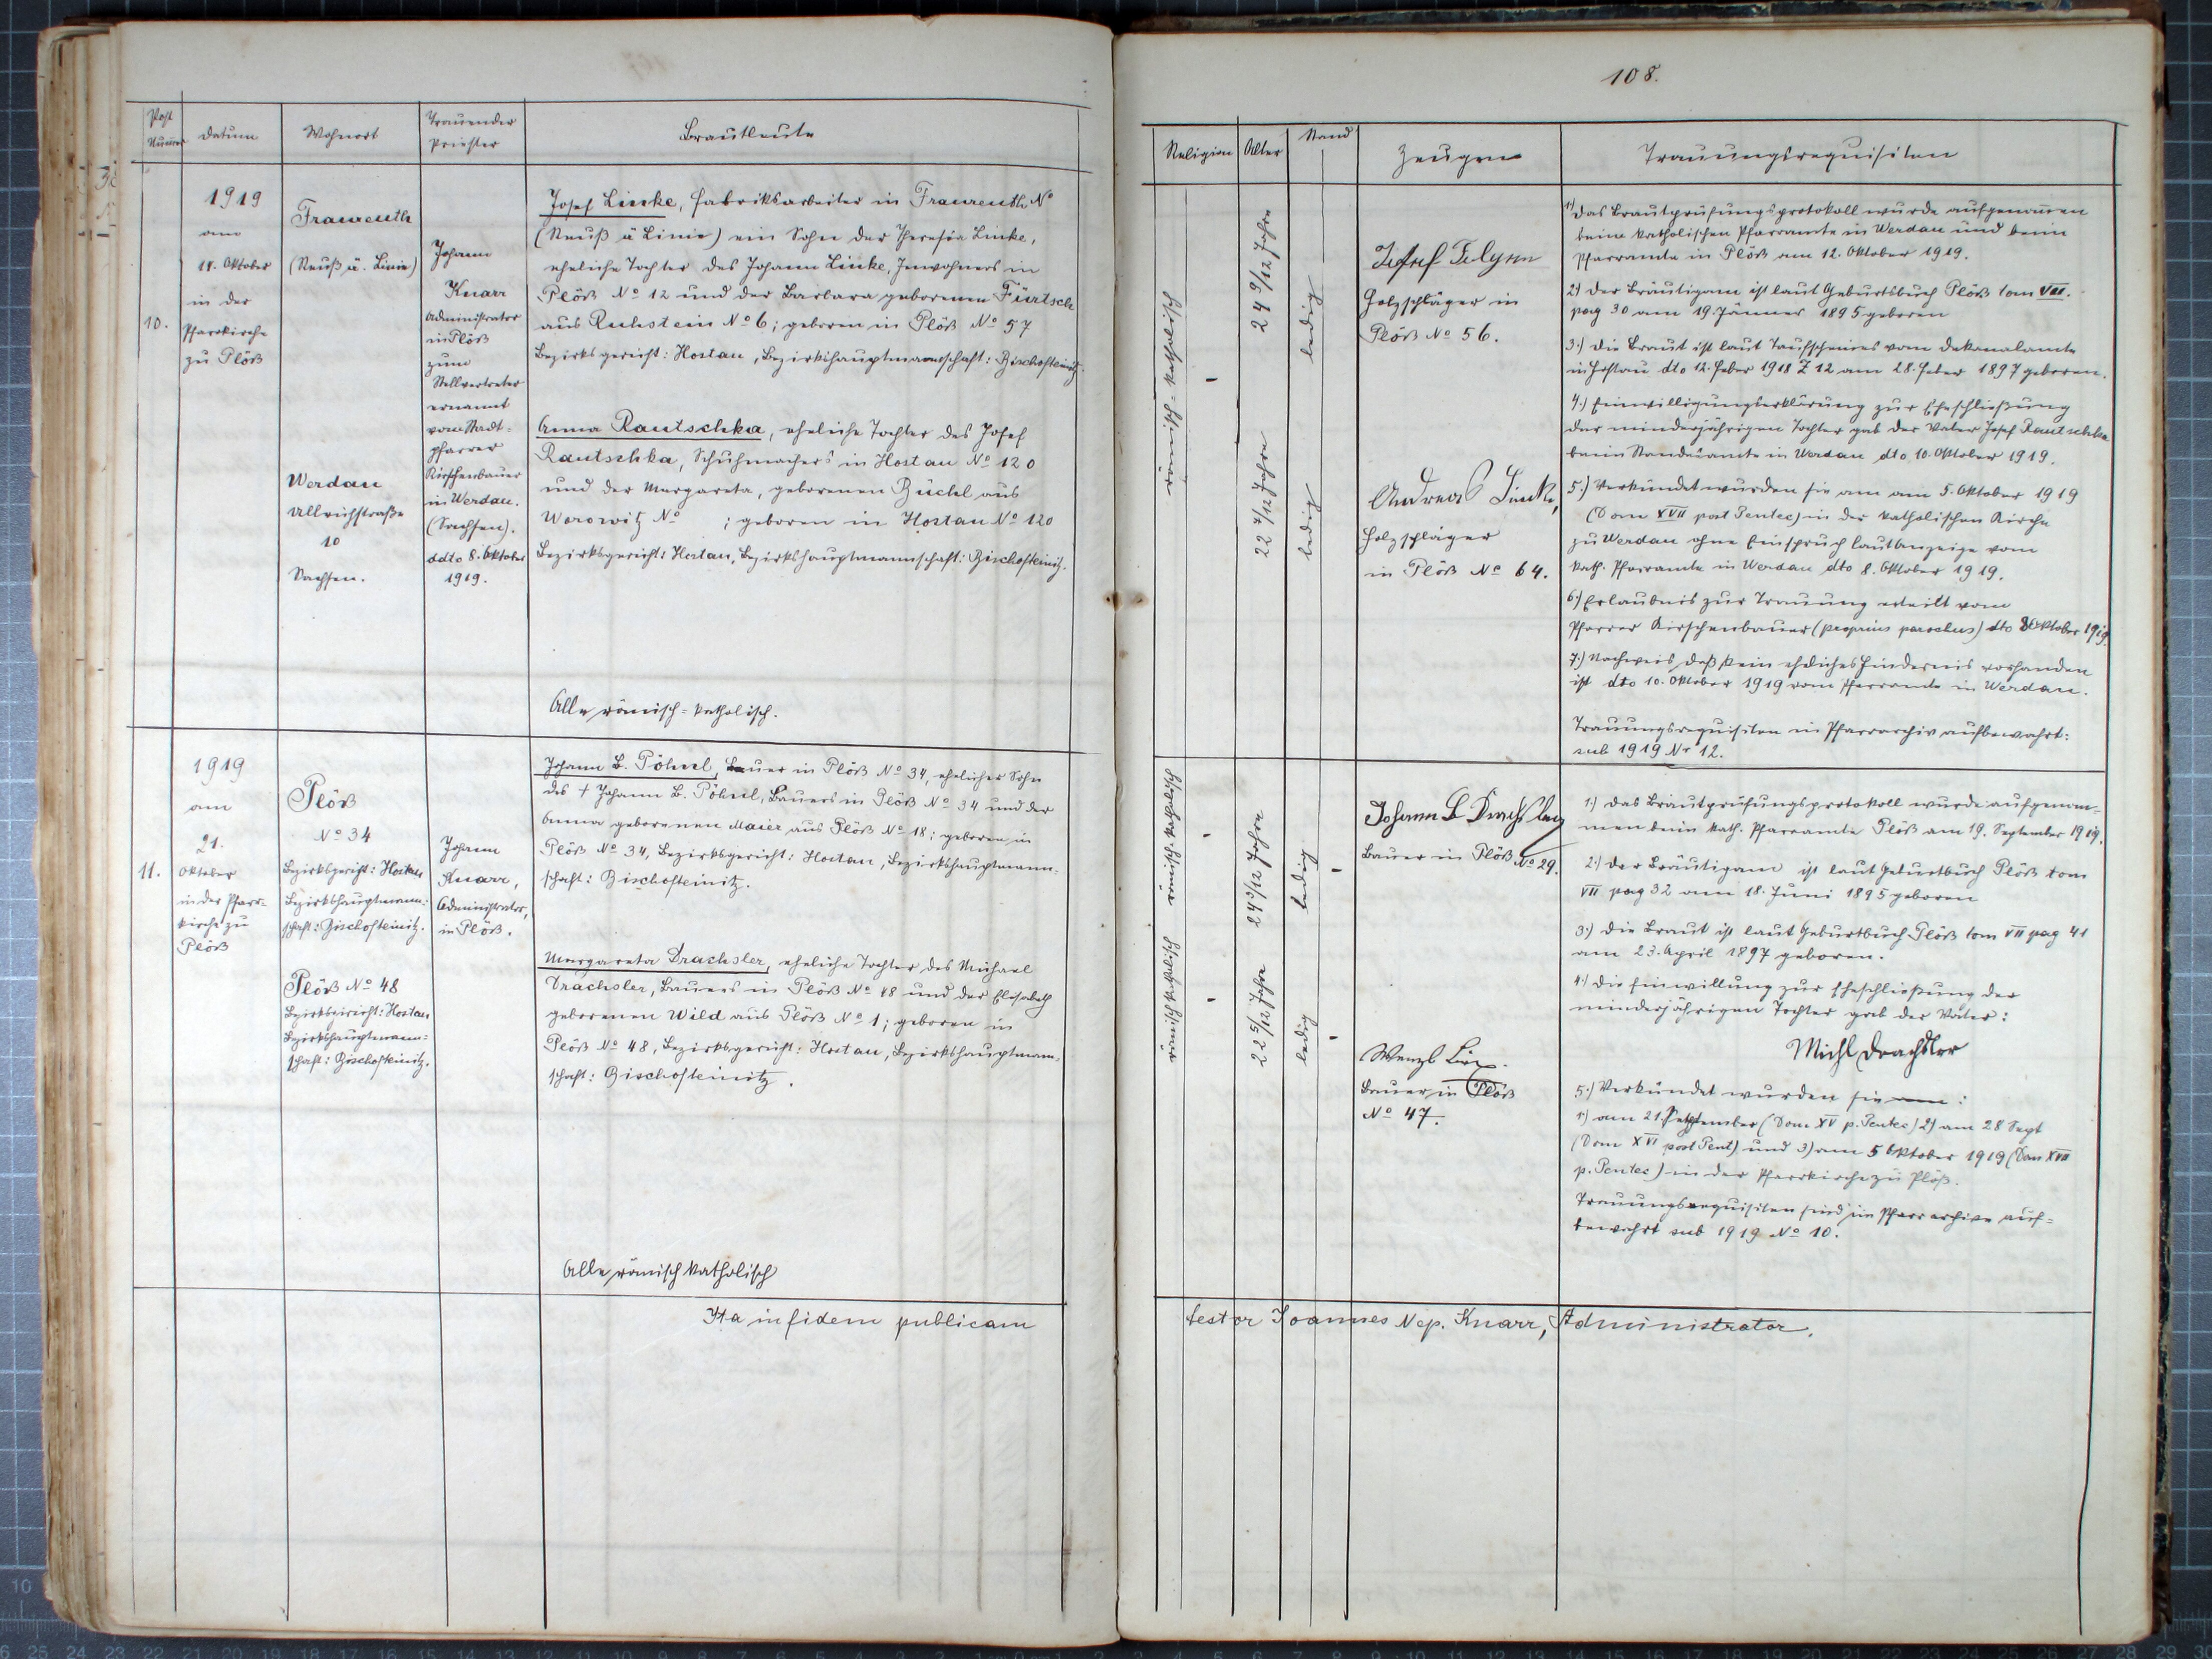 108.
Post
Nummer
Datum
Wohnort
Trauender
Priester
Brautleute
Religion
Alter
Stand
Zeugen
Trauungsrequisiten
10.
1919
am
14. Oktober
in der
Pfarrkirche
zu Plöß
Fraureuth
(Reuß ä. Linie)
Werdau
Ullrichstraße
10
Sachsen.
Johann
Knarr
Administrator
in Plöß
zum
Stellvertreter
ernannt
vom Stadt-
pfarrer
Kirschenbauer
in Werdau.
(Sachsen).
ddto 8. Oktober
1919.
Josef Linke, Fabriksarbeiter in Fraureuth No
(Reuß ä Linie) ein Sohn der Theresia Linke,
eheliche Tochter des Johann Linke, Inwohners in
Plöß No 12 und der Barbara geborenen Fürtsch
aus Ruhstein No 6; geboren in Plöß No 57
Bezirksgericht: Hostau, Bezirkshauptmannschaft: Bischofteinitz.
Anna Rautschka, eheliche Tochter des Josef
Rautschka, Schuhmachers in Hostau No 120
und der Margareta, geborenen Büchl aus
Worowitz No ; geboren in Hostau No 120
Bezirksgericht: Hostau, Bezirkshauptmannschaft: Bischofteinitz.
Alle römisch-katholisch.
römisch-katholisch
24 9/12 Jahre
ledig
22 7/12 Jahre
ledig
Josef
Holzschläger in
Plöß No 56.
Andreas Linke,
Holzschläger
in Plöß No 64.
1) Das Brautprüfungsprotokoll wurde aufgenommen
beim katholischen Pfarramte in Werdau und beim
Pfarramte in Plöß am 12. Oktober 1919.
2) Der Bräutigam ist laut Geburtsbuch Plöß tom VII.
pag 30 am 19. Jänner 1895 geboren
3.) Die Braut ist laut Taufscheines vom Dekanalamte
in Hostau dto 12. Feber 1918 Z 12 am 28. Feber 1897 geboren.
4.) Einwilligungserklärung zur Eheschließung
der minderjährigen Tochter gab der Vater Josef Rautschka
beim Standesamte in Werdau dto 10. Oktober 1919.
5.) Verkündet wurden sie am am 5. Oktober 1919
(Dom XVII post Pentec) in der katholischen Kirche
zu Werdau ohne Einspruch laut Anzeige vom
kath. Pfarramte in Werdau dto 8. Oktober 1919.
6.) Erlaubnis zur Trauung erteilt vom
Pfarrer Kirschenbauer (proprius parochus) dto 8 Oktober 1919.
7.) Nachweis, daß kein eheliches Hindernis vorhanden
ist dto 10. Oktober 1919 vom Pfarramte in Werdau.
Trauungsrequisiten in Pfarrarchiv aufbewahrt:
sub 1919 Nr 12.
11.
1919
am
21.
Oktober
in der Pfarr-
kirche zu
Plöß
Plöß
No 34
Bezirksgericht: Hostau
Bezirkshauptmann-
schaft: Bischofteinitz.
Plöß No 48
Bezirksgericht: Hostau
Bezirkshauptmann-
schaft: Bischofteinitz.
Johann
Knarr,
Administrator,
in Plöß.
Johann B. Pöhnl, Bauer in Plöß No 34, ehelicher Sohn
des + Johann B. Pöhnl, Bauers in Plöß No 34 und der
Anna geborenen Maier aus Plöß No 18; geboren in
Plöß No 34, Bezirksgericht: Hostau, Bezirkshauptmann-
schaft: Bischofteinitz.
Margareta Drachsler, eheliche Tochter des Michael
Drachsler, Bauers in Plöß No 48 und der Elisabeth
geborenen Wild aus Plöß No 1; geboren in
Plöß No 48, Bezirksgericht: Hostau, Bezirkshauptmann-
schaft: Bischofteinitz.
Alle römisch katholisch
römisch-katholisch
24 3/12 Jahre
ledig
römisch katholisch
22 5/12 Jahre
ledig
Johann B Drachsler
Bauer in Plöß No 29.
Wenzl
Bauer in Plöß
No 47.
1.) Das Brautprüfungsprotokoll wurde aufgenom-
men beim kath. Pfarramte Plöß am 19. September 1919.
2.) Der Bräutigam ist laut Geburtbuch Plöß tom
VII pag 32 am 18. Juni 1895 geboren
3.) Die Braut ist laut Geburtbuch Plöß tom VII pag 41
am 23. April 1897 geboren.
4.) Die Einwillung zur Eheschließung der
minderjährigen Tochter gab der Vater:
Michl Drachsler
5.) Verkündet wurden sie am:
1.) am 21. September (Dom XV p. Pentec) 2) am 28 Sept
(Dom XVI post Pent) und 3) am 5 Oktober 1919 (Dom XVII
p. Pentec) in der Pfarrkirche zu Plöß.
Trauungsrequisiten sind im Pfarrarchive auf-
bewahrt sub 1919 No 10.
Ita in fidem publicam
testor Joannes Nep. Knarr, Administrator.